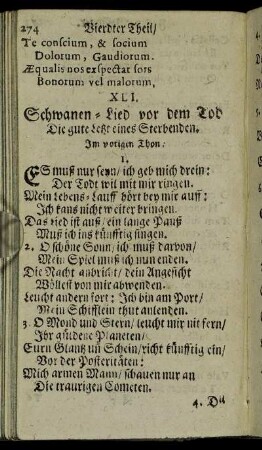 274 Vierdter Theil/
Te conscium, & socium
Dolorum, Gaudiorum.
Æqualis nos exspectat sors
Bonorum vel malorum,
XLI.
Schwanen-Lied vor dem Tod
Die gute Letzt eines Sterbenden.
Im vorigen Thon:
1.
ES muß nur seyn/ ich geb mich drein:
Der Todt wil mit mir ringen.
Mein Lebens-Lauff hört bey mir auff:
Ich kans nicht weiter bringen.
Das Lied ist auß/ ein lange Pauß
Muß ich ins künfftig singen.
2. O schöne Sonn/ ich muß darvon/
Mein Spiel muß ich nun enden.
Die Nacht anbricht/ dein Angesicht
Wöllest von mir abwenden.
Leucht andern fort: Ich bin am Port/
Mein Schifflein thut anlenden.
3. O Mond und Stern/ leucht mir nit fern/
Ihr güldene Planeten/
Eurn Glantz un Schein/ richt künfftig ein/
Vor der Posteritäten:
Mich armen Mann/ schauen nur an
Die traurigen Cometen.
4. Du